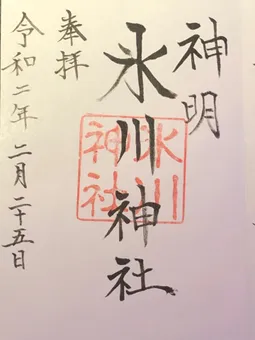 神明
氷川神社
氷川
神社
奉拝
令和二年 二月二十五日